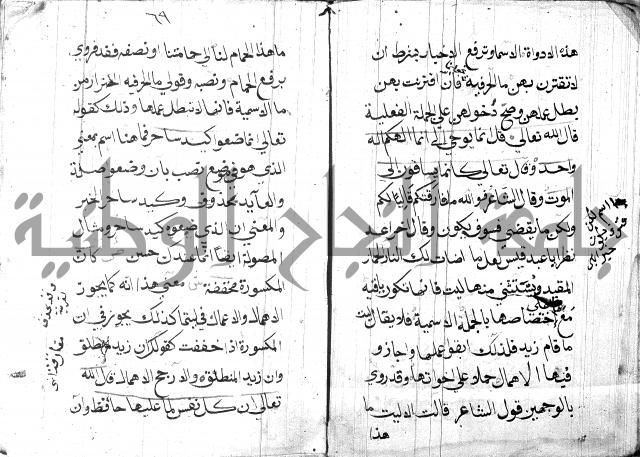 هذه الادواة الاسماء وترفع الاخبار بشرط ان
لا تقترن بهن ما الحرفية فان اقترنت بهن
بطل عملهن وصح دخولهن على الجملة الفعلية
قال الله تعالى قل انما يوحى الي انما الهكم اله
واحد وقال تعالى كانما يساقون الى
الموت وقال الشاعر فوالله ما فارقتكم قاليا لكم
ولكن ما يقضى فسوف يكون وقال آخر اعد
نظرا يا عبد قيس لعل ما اضاءت لك النار الحمار
المقيدا ويستثنى منها ليت فانها تكون باقية
مع اختصاصها بالجملة الاسمية فلا يقال ليت
ما قام زيد فلذلك ابقو عملها واجازو
فيها الاهمال حملا على اخوتها وقد روي
بالوجهين قول الشاعر قالت الا ليت ما
هذا
٦٩
ما هذا الحمام لنا الى حمامتنا او نصفه فقد فروي
برفع الحمام ونصبه وقولي ما الحرفيه احترازا من
ما الاسمية فانها لا تبطل عملها وذلك كقوله
تعالى انما صنعوا كيد ساحر فما هنا اسم بمعنى
الذي هو في موضع نصب بان وصنعوا صلة
والعايد محذوف وكيد ساحر الخبر
والمعنى ان الذي صنعوا كيد ساحر ومثال
المكسورة مخففة معنى هذا انه كما يجوز
الاهمال والاعمال في ليتما كذلك يجوز في ان
المكسورة اذا خففت كقولك ان زيد لمنطلق
وان زيدا لمنطلق والارجح الاهمال قال الله
تعالى ان كل نفس لما عليها حافظ وان
جامعة النجاح الوطنية